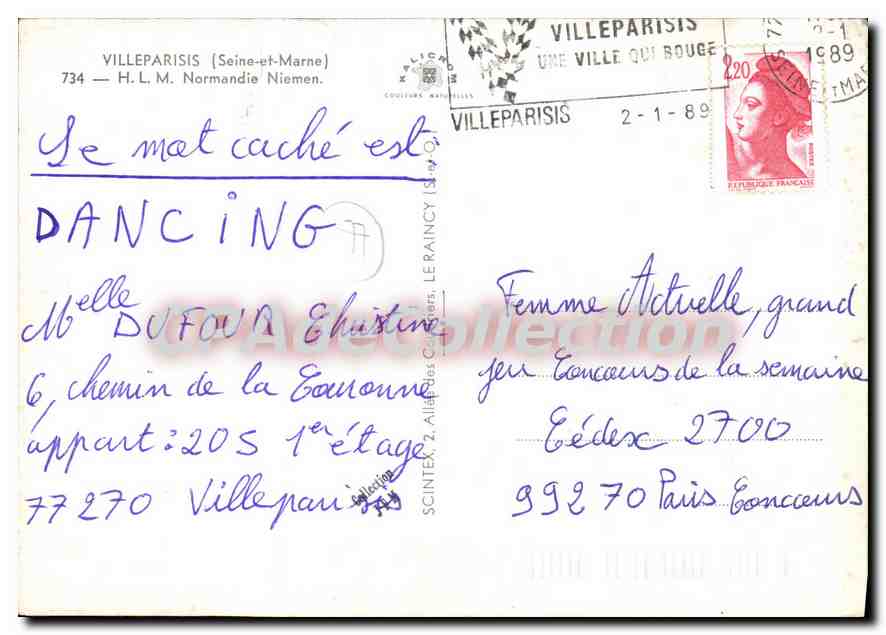 VILLEPARISIS (Seine-et-Marne)
734 — H. L. M. Normandie Niemen.
KALICROM
COULEURS NATURELLES
VILLEPARISIS
UNE VILLE QUI BOUGE
VILLEPARISIS 2-1-89
77
2-1
1989
SEINE ET MAR
2,20
POSTES
REPUBLIQUE FRANÇAISE
Le mot caché est
DANCING
77
Melle DUFOUR Christine
6, chemin de la Couronne
appart: 205 1er étage
77270 Villeparisis
Collection
SCINTEX, 2, Allée des Coudriers, LE RAINCY (S.-et-O.)
Femme Actuelle, grand
jeu Concours de la semaine
Cédex 2700
99270 Paris Concours
CPAgeCollection